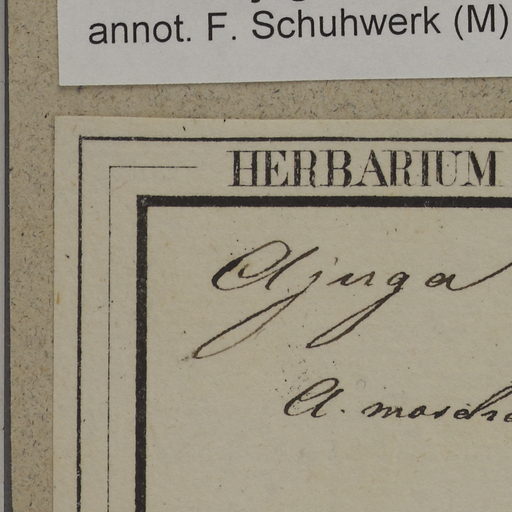 annot. F. Schuhwerk (M)
HERBARIUM
Ajuga
A.